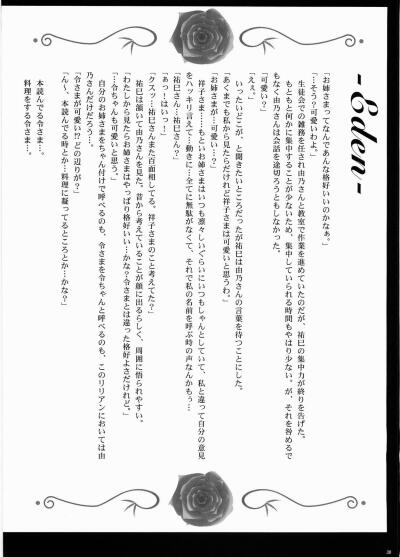 -Eden-
「お姉さまってなんであんな格好いいのかなぁ。」
「…そう？可愛いわよ。」
生徒会での雑務を任され由乃さんと教室で作業を進めていたのだが、祐巳の集中力が終りを告げた。
もともと何かに集中することが少ないため、集中していられる時間もやはり少ない。が、それを咎めるで
もなく由乃さんは会話を途切ろうともしなかった。
「可愛い？」
「ええ。」
いったいどこが、と聞きたいところだったが祐巳は由乃さんの言葉を待つことにした。
「あくまでも私から見たらだけれど祥子さまは可愛いと思うわ。」
「お姉さまが…可愛い…？」
祥子さま……もといお姉さまはいつも凛々しいぐらいにいつもしゃんとしていて、私と違って自分の意見
をハッキリ言えて…動きに…全てに無駄がなくて、それで私の名前を呼ぶ時の声なんかもぅ…
「祐巳さん…祐巳さん？」
「あっ！はいっ！」
「クスッ…祐巳さんまた百面相してる。祥子さまのこと考えてた？」
祐巳は頷いて由乃さんを見た。昔から考えていることが顔に出るらしく、周囲に悟られやすい。
「わたしから見たらお姉さまはやっぱり格好いい…かな？令さまとは違った格好よさだけれど。」
「…令ちゃんも可愛いと思う。」
自分のお姉さまをちゃん付けで呼べるのも、令さまを令ちゃんと呼べるのも、このリリアンにおいては由
乃さんだけだろう…。
「令さまが可愛い!?どの辺りが？」
「ん～、本読んでる時とか…料理に凝ってるところとか…かな？」
本読んでる令さま…。
料理をする令さま…。